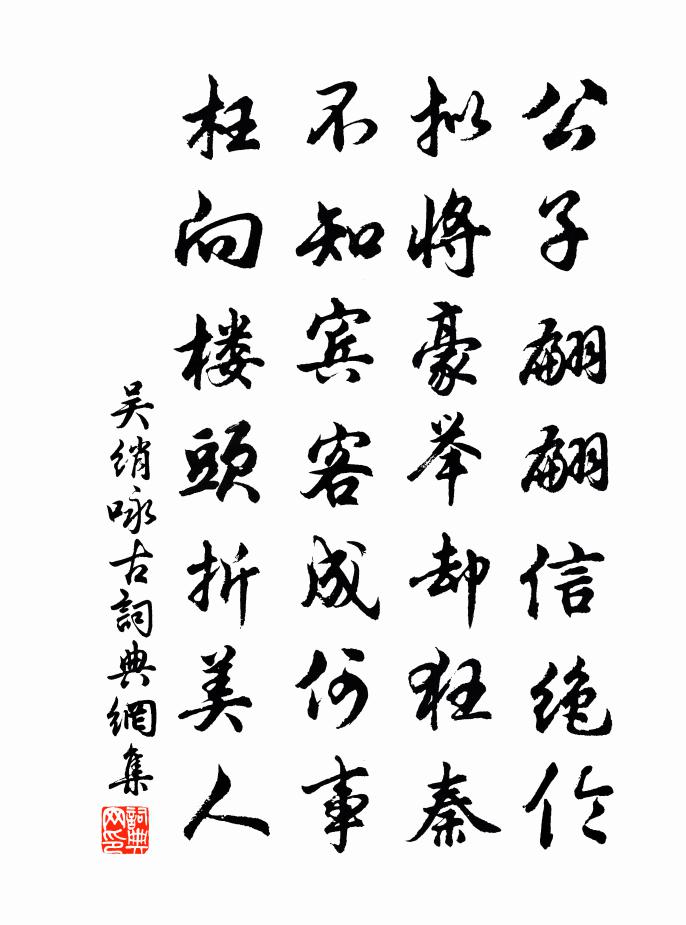 公子翩翩信绝伦
拟將豪举却狂秦
不知宾客成何事
枉向楼頭折美人
吴绡咏古詞典網集
詞典网印